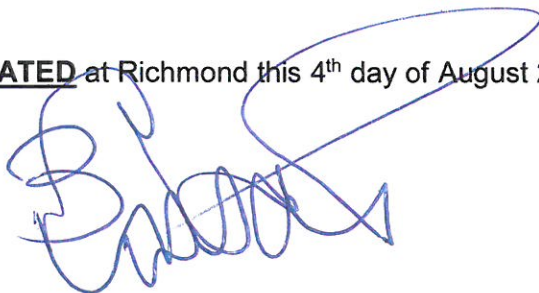 ATED at Richmond this 4th day of August 2